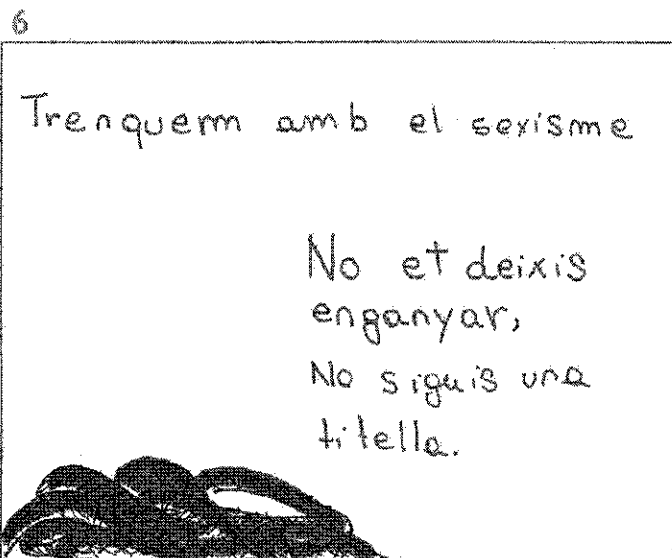 6
Trenquem amb el sexisme
No et deixis
enganyar,
No siguis una
titella.